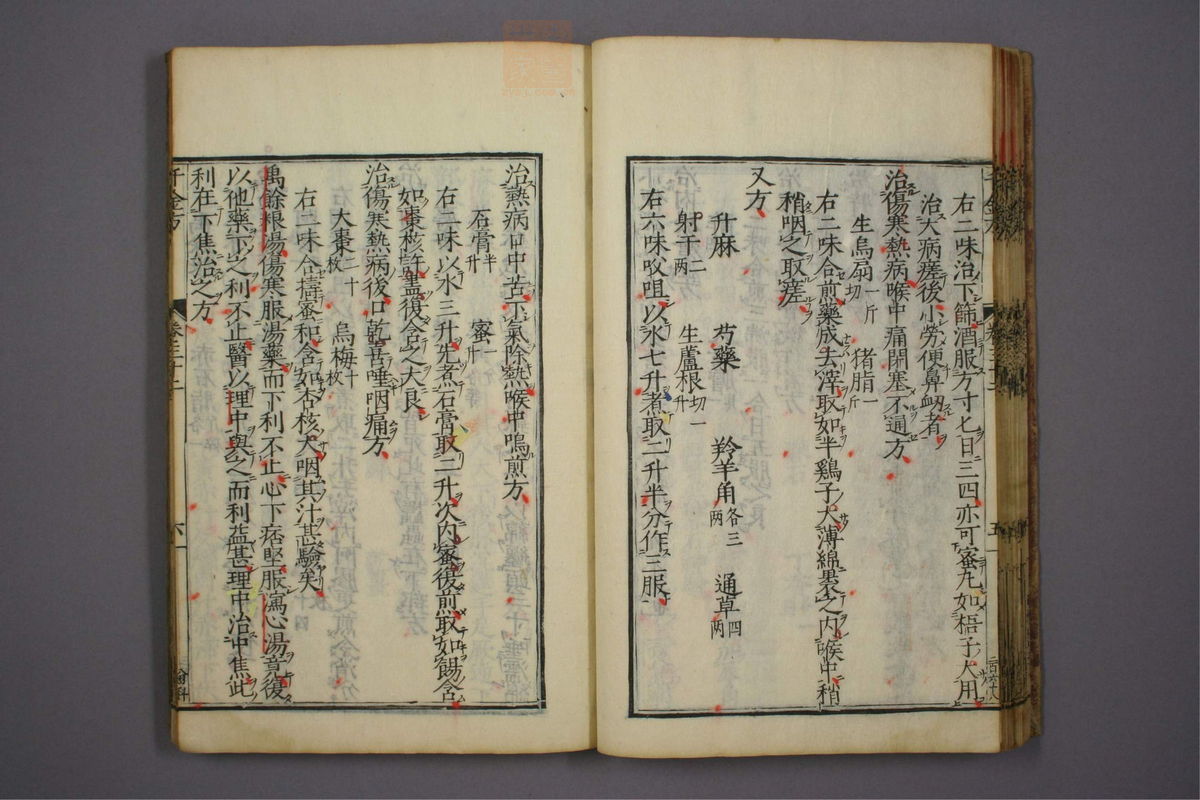 右二味治下篩酒服方寸匕日三四亦可蜜丸如梧子大用
治大病瘥後小勞便鼻衄者
治傷寒熱病喉中痛閉塞不通方
生烏扇切一斤 猪脂一斤
右二味合煎藥成去滓取如半鷄子大薄綿裹之内喉中稍
稍咽之取瘥
又方
升麻 芍藥 羚羊角各三兩 通草四兩
射干二兩 生蘆根切一升
右六味㕮咀以水七升煮取二升半分作三服
治熱病口中苦下氣除熱喉中鳴煎方
石膏半升 蜜一升
右二味以水三升先煮石膏取二升次内蜜復煎取如餳含
如棗核許盡復含之大良
治傷寒熱病後口乾喜唾咽痛方
大棗二十枚 烏梅十枚
右二味合擣蜜和含如杏核大咽其汁甚驗矣
禹餘粮湯傷寒服湯藥而下利不止心下痞堅服瀉心湯竟復
以他藥下之利不止醫以理中與之而利益甚理中治中焦此
利在下焦治之方
千金方 卷三十二 六
五